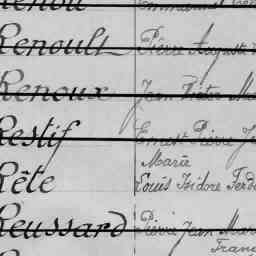 Renou Emmanuel
Renoult Pierre Auguste
Renoux Jean Victor
Restif Ernest Pierre
Marie
Rête Louis Isidore Ferd
Reussard Pierre Jean Mar
Fran